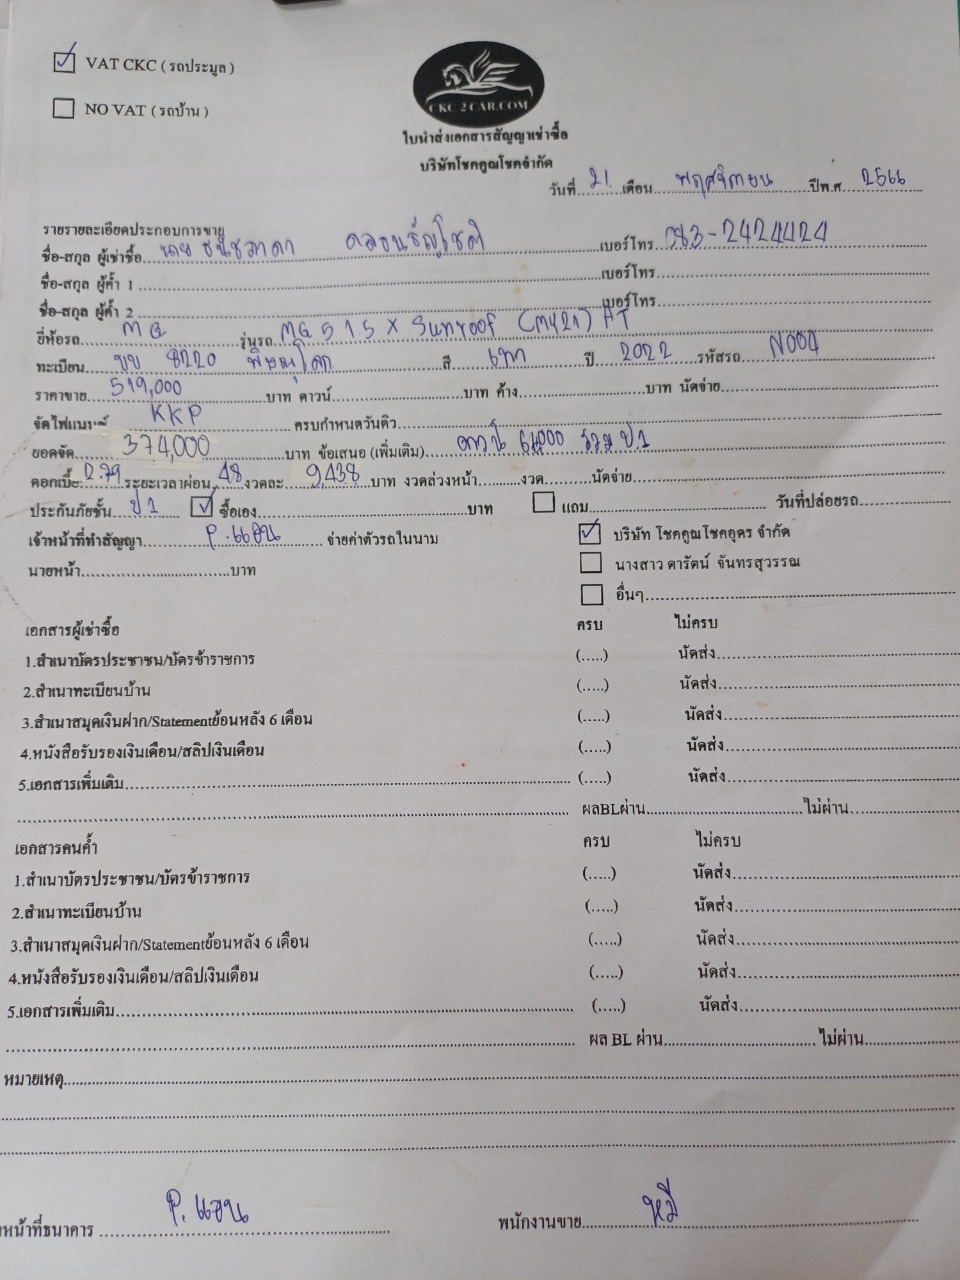 ☑ VAT CKC ( รถประมูล )
☐ NO VAT ( รถบ้าน )
CKC 2 CAR.COM
ใบนำส่งเอกสารสัญญาเช่าซื้อ
บริษัทโชคคูณโชคจำกัด
วันที่ 21 เดือน พฤศจิกายน ปีพ.ศ. 2566
รายรายละเอียดประกอบการขาย
ชื่อ-สกุล ผู้เช่าซื้อ นาย เบอร์โทร 083-2424424
ชื่อ-สกุล ผู้ค้ำ 1 เบอร์โทร
ชื่อ-สกุล ผู้ค้ำ 2 เบอร์โทร
ยี่ห้อรถ MG รุ่นรถ MG 5 1.5 X Sunroof (MY21) AT
ทะเบียน ขบ 8220 พิษณุโลก สี เทา ปี 2022 รหัสรถ N004
ราคาขาย 519,000 บาท ดาวน์ บาท ค้าง บาท นัดจ่าย
จัดไฟแนนซ์ KKP ครบกำหนดวันดิว
ยอดจัด 374,000 บาท ข้อเสนอ (เพิ่มเติม) ดาวน์ รวม ป.1
ดอกเบี้ย 2.79 ระยะเวลาผ่อน 48 งวดละ 9,438 บาท งวดล่วงหน้า งวด นัดจ่าย
ประกันภัยชั้น ป 1 ☑ ซื้อเอง บาท ☐ แถม วันที่ปล่อยรถ
เจ้าหน้าที่ทำสัญญา P. แอน จ่ายค่าตัวรถในนาม ☑ บริษัท โชคคูณโชคอุดร จำกัด
นายหน้า บาท ☐ นางสาว ดารัตน์ จันทรสุวรรณ
☐ อื่นๆ
เอกสารผู้เช่าซื้อ ครบ ไม่ครบ
1.สำเนาบัตรประชาชน/บัตรข้าราชการ (.....) นัดส่ง
2.สำเนาทะเบียนบ้าน (.....) นัดส่ง
3.สำเนาสมุดเงินฝาก/Statementย้อนหลัง 6 เดือน (.....) นัดส่ง
4.หนังสือรับรองเงินเดือน/สลิปเงินเดือน (.....) นัดส่ง
5.เอกสารเพิ่มเติม (.....) นัดส่ง
ผลBLผ่าน ไม่ผ่าน
เอกสารคนค้ำ ครบ ไม่ครบ
1.สำเนาบัตรประชาชน/บัตรข้าราชการ (.....) นัดส่ง
2.สำเนาทะเบียนบ้าน (.....) นัดส่ง
3.สำเนาสมุดเงินฝาก/Statementย้อนหลัง 6 เดือน (.....) นัดส่ง
4.หนังสือรับรองเงินเดือน/สลิปเงินเดือน (.....) นัดส่ง
5.เอกสารเพิ่มเติม (.....) นัดส่ง
ผล BL ผ่าน ไม่ผ่าน
หมายเหตุ
หน้าที่ธนาคาร P. แอน พนักงานขาย หมี